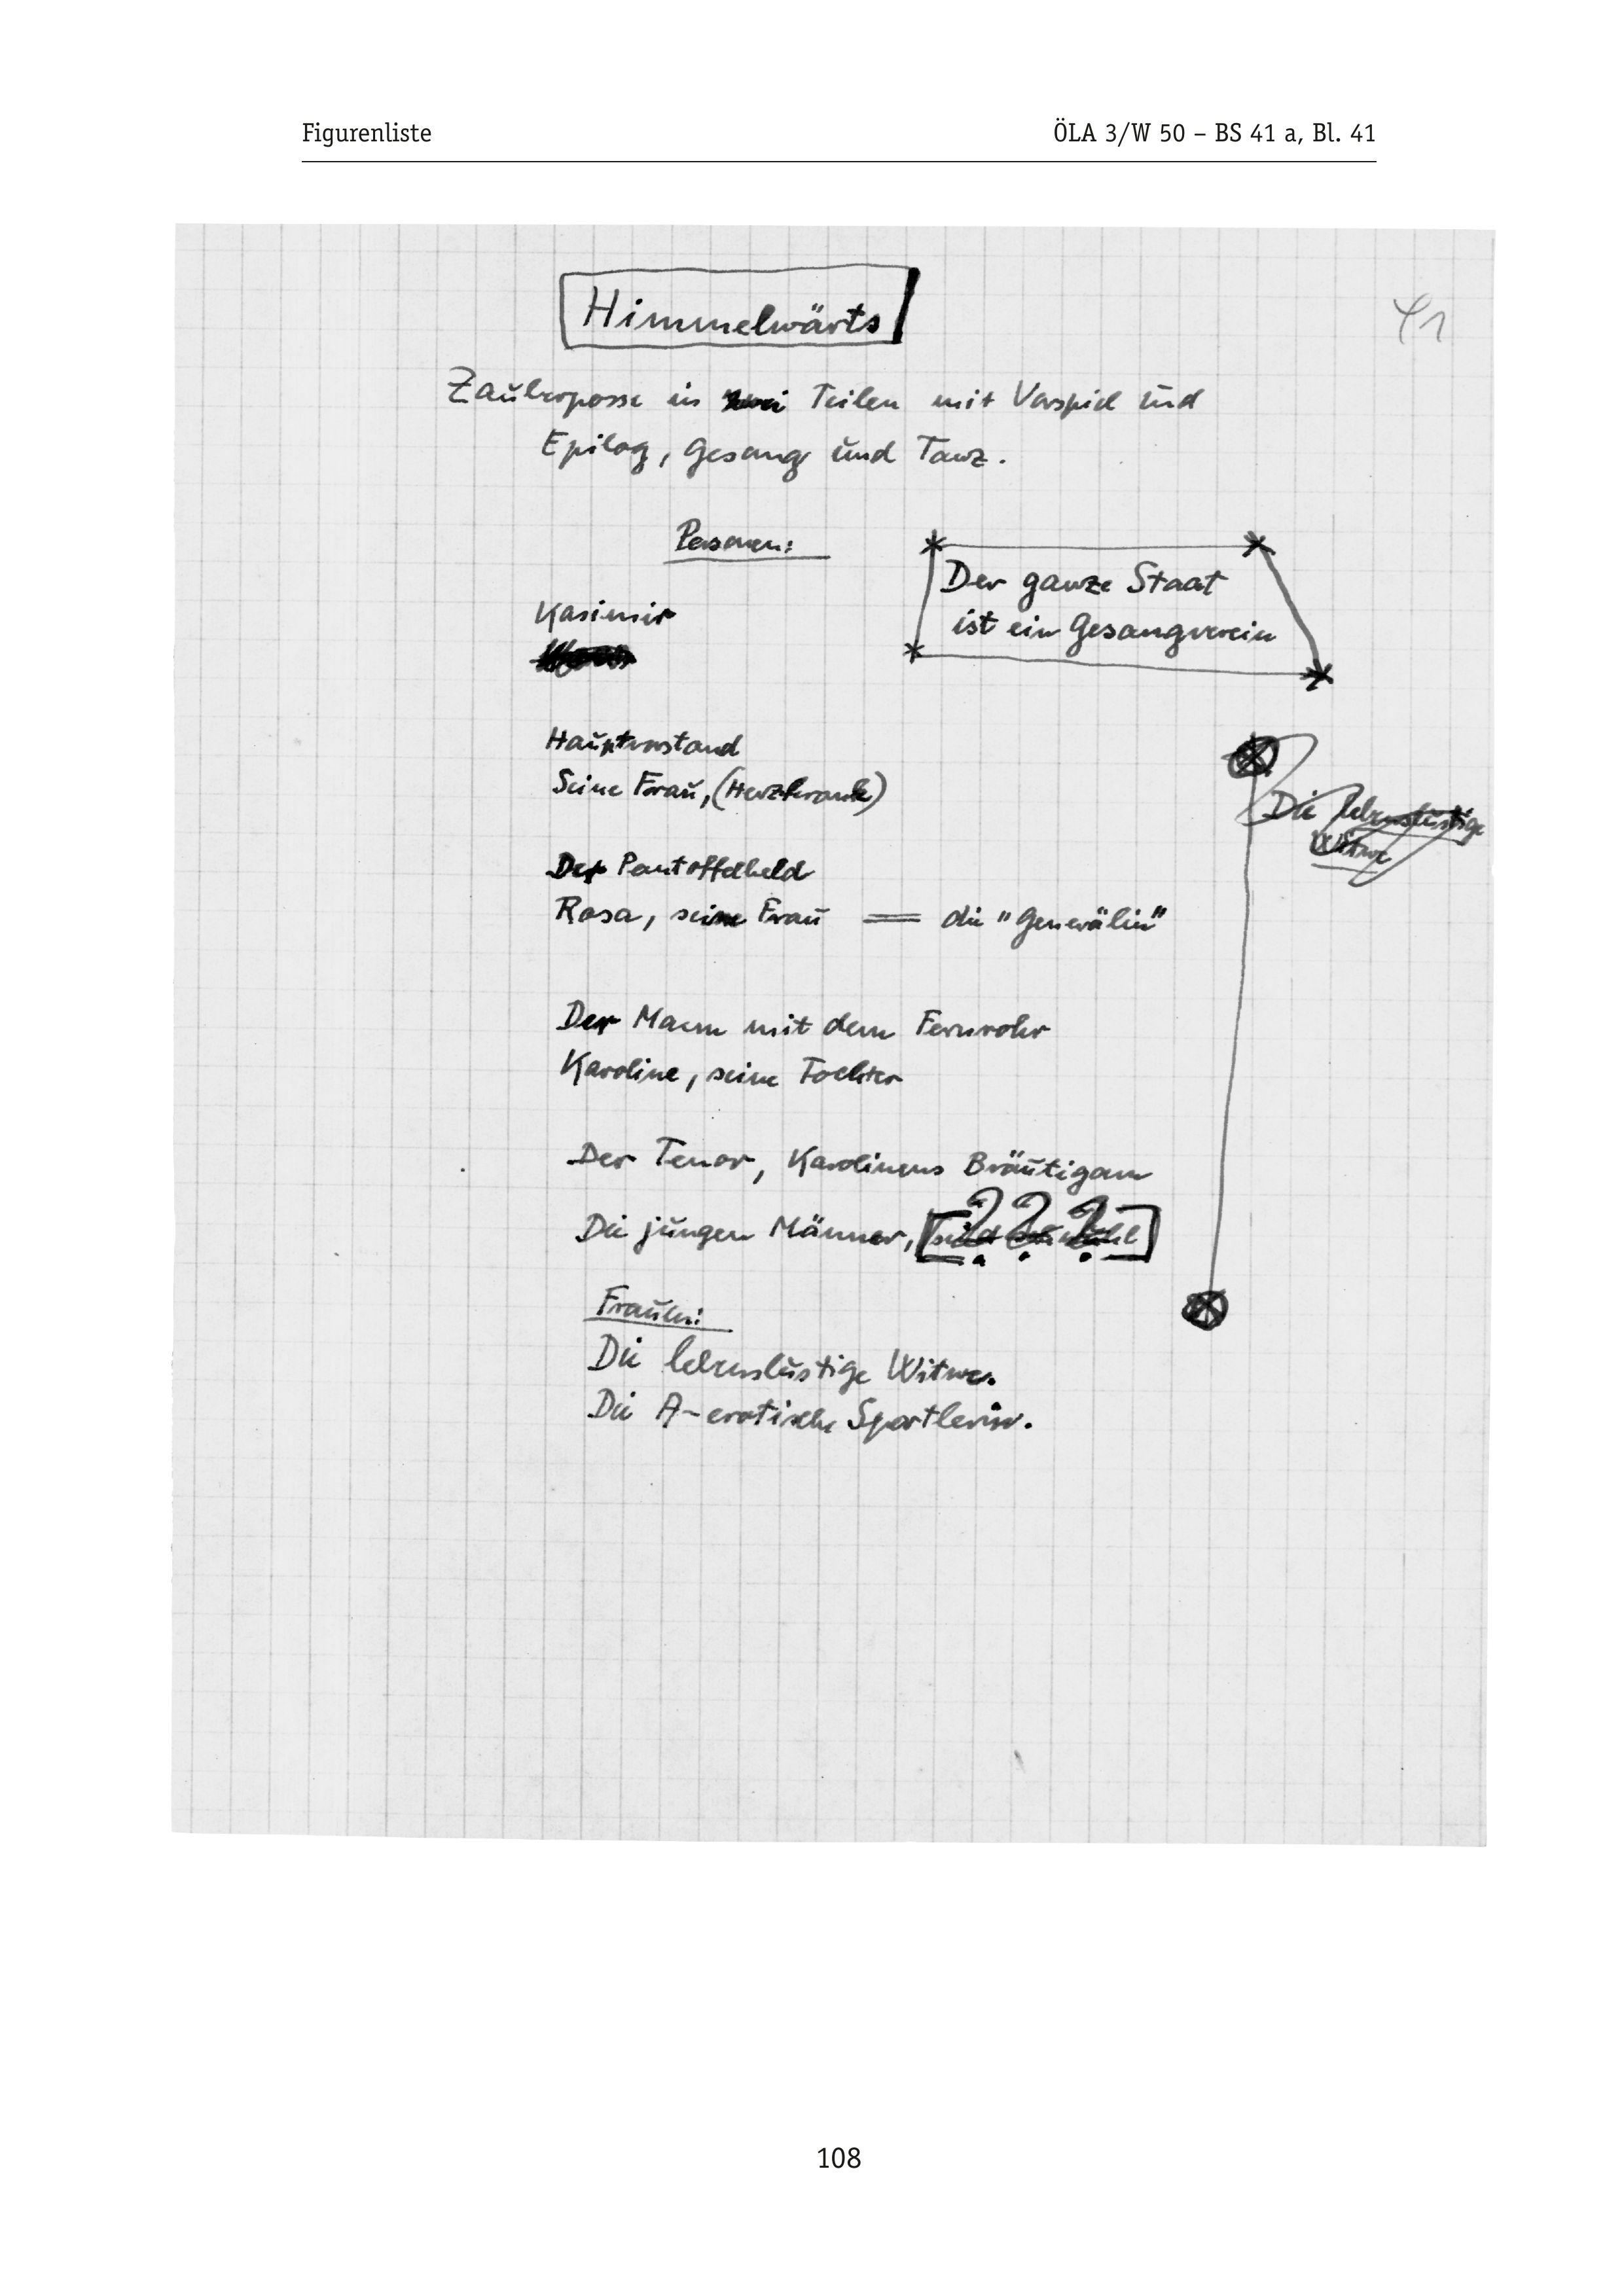 Figurenliste
ÖLA 3/W 50 – BS 41 a, Bl. 41
Himmelwärts
41
Zauberposse in zwei Teilen mit Vorspiel und
Epilog, Gesang und Tanz.
Personen:
Der ganze Staat
ist ein Gesangverein
Kasimir
Hauptvorstand
Seine Frau, (Herzkrank)
Die lebenslustige
Witwe
Der Pantoffelheld
Rosa, seine Frau = die "Generälin"
Der Mann mit dem Fernrohr
Karoline, seine Tochter
Der Tenor, Karolinens Bräutigam
Die jungen Männer, ???
Frauen:
Die lebenslustige Witwe.
Die A-erotische Sportlerin.
108